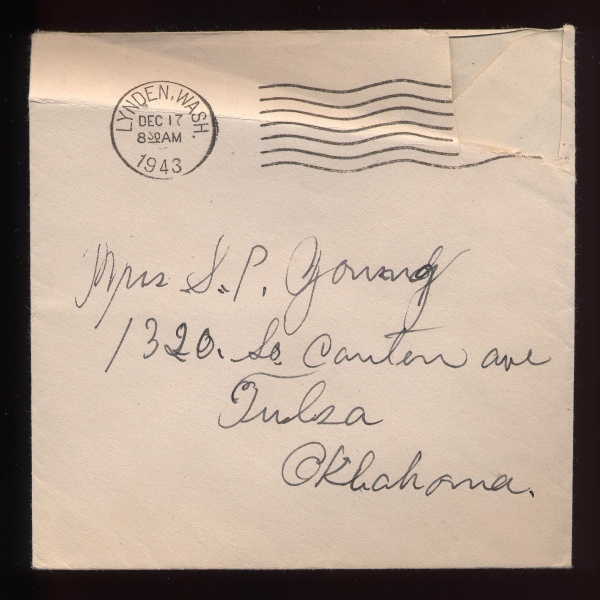 LYNDEN, WASH.
DEC 17
8 30 AM
1943
Mrs S. P. Young
1320. So. Canton ave
Tulsa
Oklahoma.